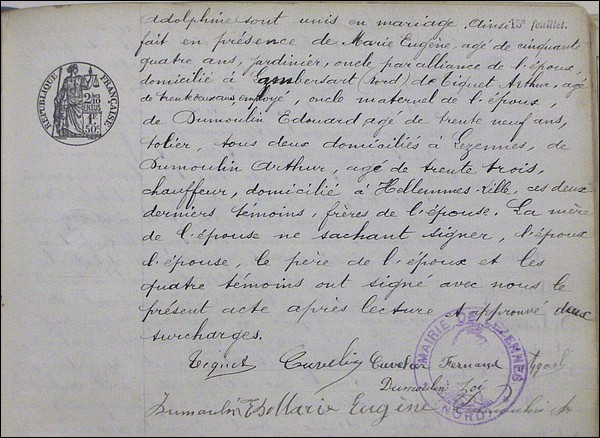 adolphine sont unis en mariage. Ainsi 15e feuillet.
fait en présence de Marie Eugène, agé de cinquante
quatre ans, jardinier, oncle par alliance de l'époux
domicilié à Lambersart (Nord) de Tiquet Arthur, agé
de trente deux ans, employé, oncle maternel de l'époux
de Dumoulin Edouard agé de trente neuf ans,
tôlier, tous deux domiciliés à Lezennes, de
Dumoulin Arthur, agé de trente trois,
chauffeur, domicilié à Hellemmes-Lille, ces deux
derniers témoins, frères de l'épouse. La mère
de l'épouse ne sachant signer, l'époux
l'épouse, le père de l'époux et les
quatre témoins ont signé avec nous le
présent acte après lecture et approuvé deux
surcharges.
RÉPUBLIQUE FRANÇAISE
MAIRIE DE LEZENNES
NORD
Tiquet Cuvelier Cuvelier Fernand
Dumoulin Zoé
Dumoulin Ed Marie Eugène